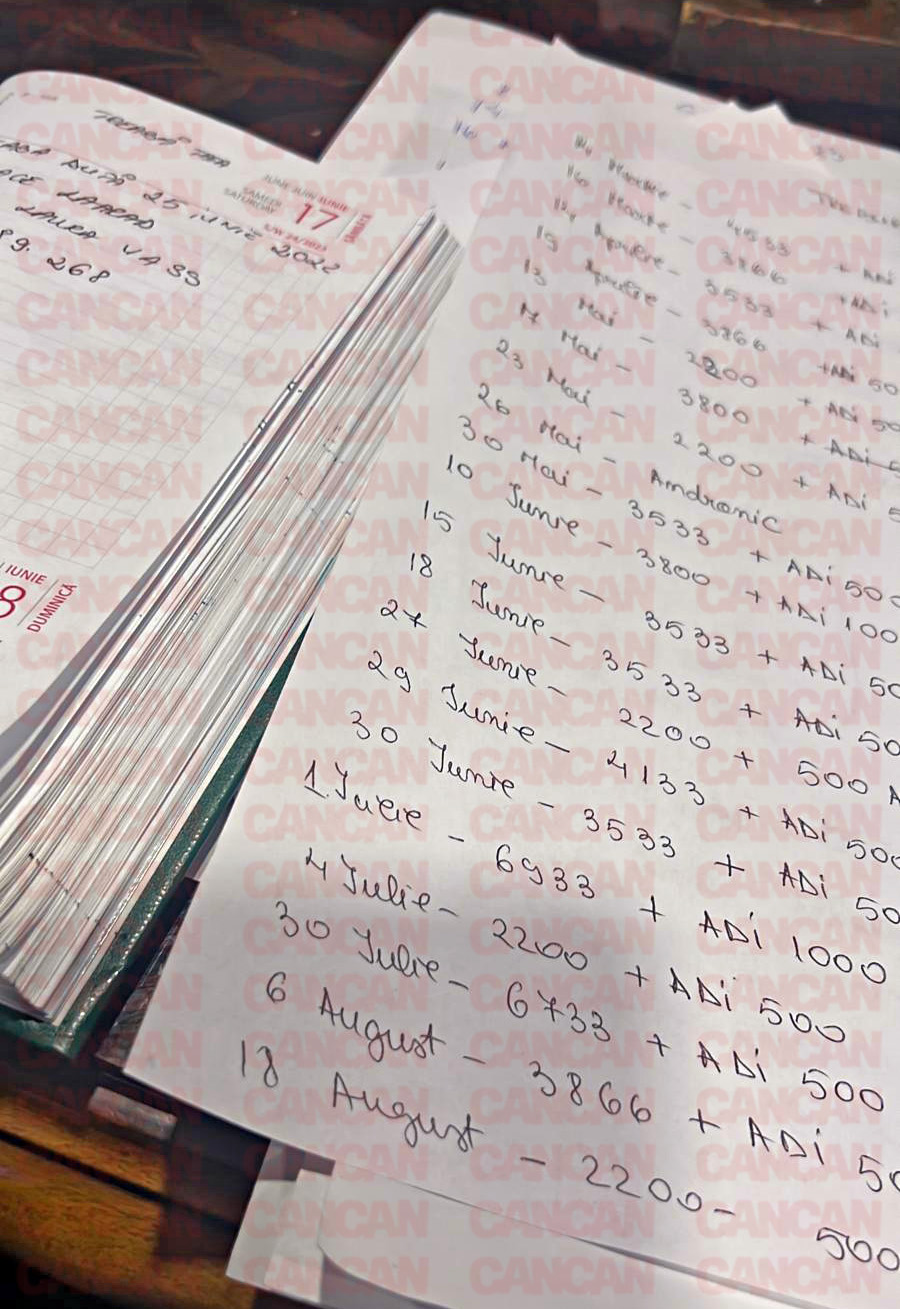 25 IUNIE 2022
LAURA VASS
268
JUNE JUIN IUNIE
SAMEDI
SATURDAY
17
SÂMBĂTĂ
IUNIE
8
DUMINICĂ
Martie - 4533 + ADi
Martie - 3866 + ADi
Aprilie - 3533 + ADi
15 Aprilie - 3866 + ADi 50
13 Mai - 2200 + ADi 50
17 Mai - 3800 + ADi 5
23 Mai - 2200 + ADi 5
26 Mai - Andronic
30 Mai - 3533 + ADi 500
10 Iunie - 3800 + ADi 100
15 Iunie - 3533 + ADi 50
18 Iunie - 3533 + ADi 50
27 Iunie - 2200 + 500 A
29 Iunie - 4133 + ADi 500
30 Iunie - 3533 + ADi 50
1 Iulie - 6933 + ADi 1000
4 Iulie - 2200 + ADi 500
30 Iulie - 6733 + ADi 500
6 August - 3866 + ADi 50
18 August - 2200 - 500
CANCAN